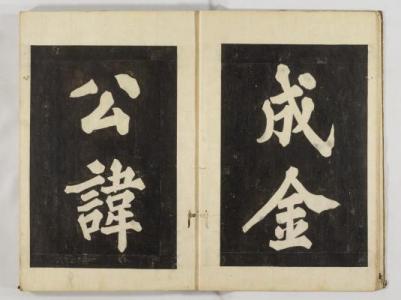 成金
公諱